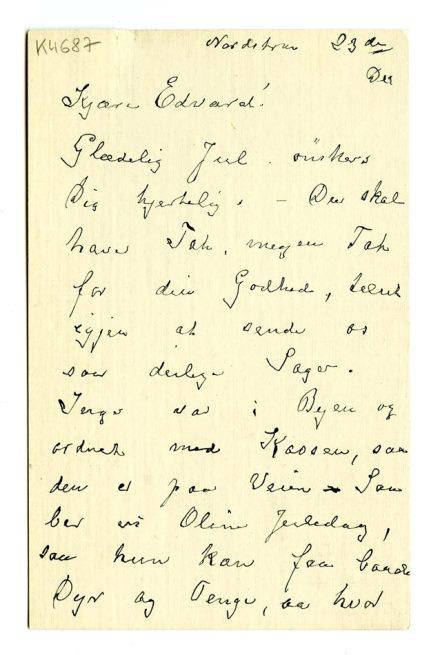 K4687
Nordstran 23 de
Des
Kjære Edvard!
Glædelig Jul ønskes
Dig hjertelig. – Du skal
have Tak, megen Tak
for din Godhed, tænk
igjen at sende os
saa deilige Sager.
Inger var i Byen og
ordnet med Kassen, saa
den er paa Veien – Saa
ber vi Oline Juledag,
saa hun kan faa baade
Dyr og Penge, aa hvor